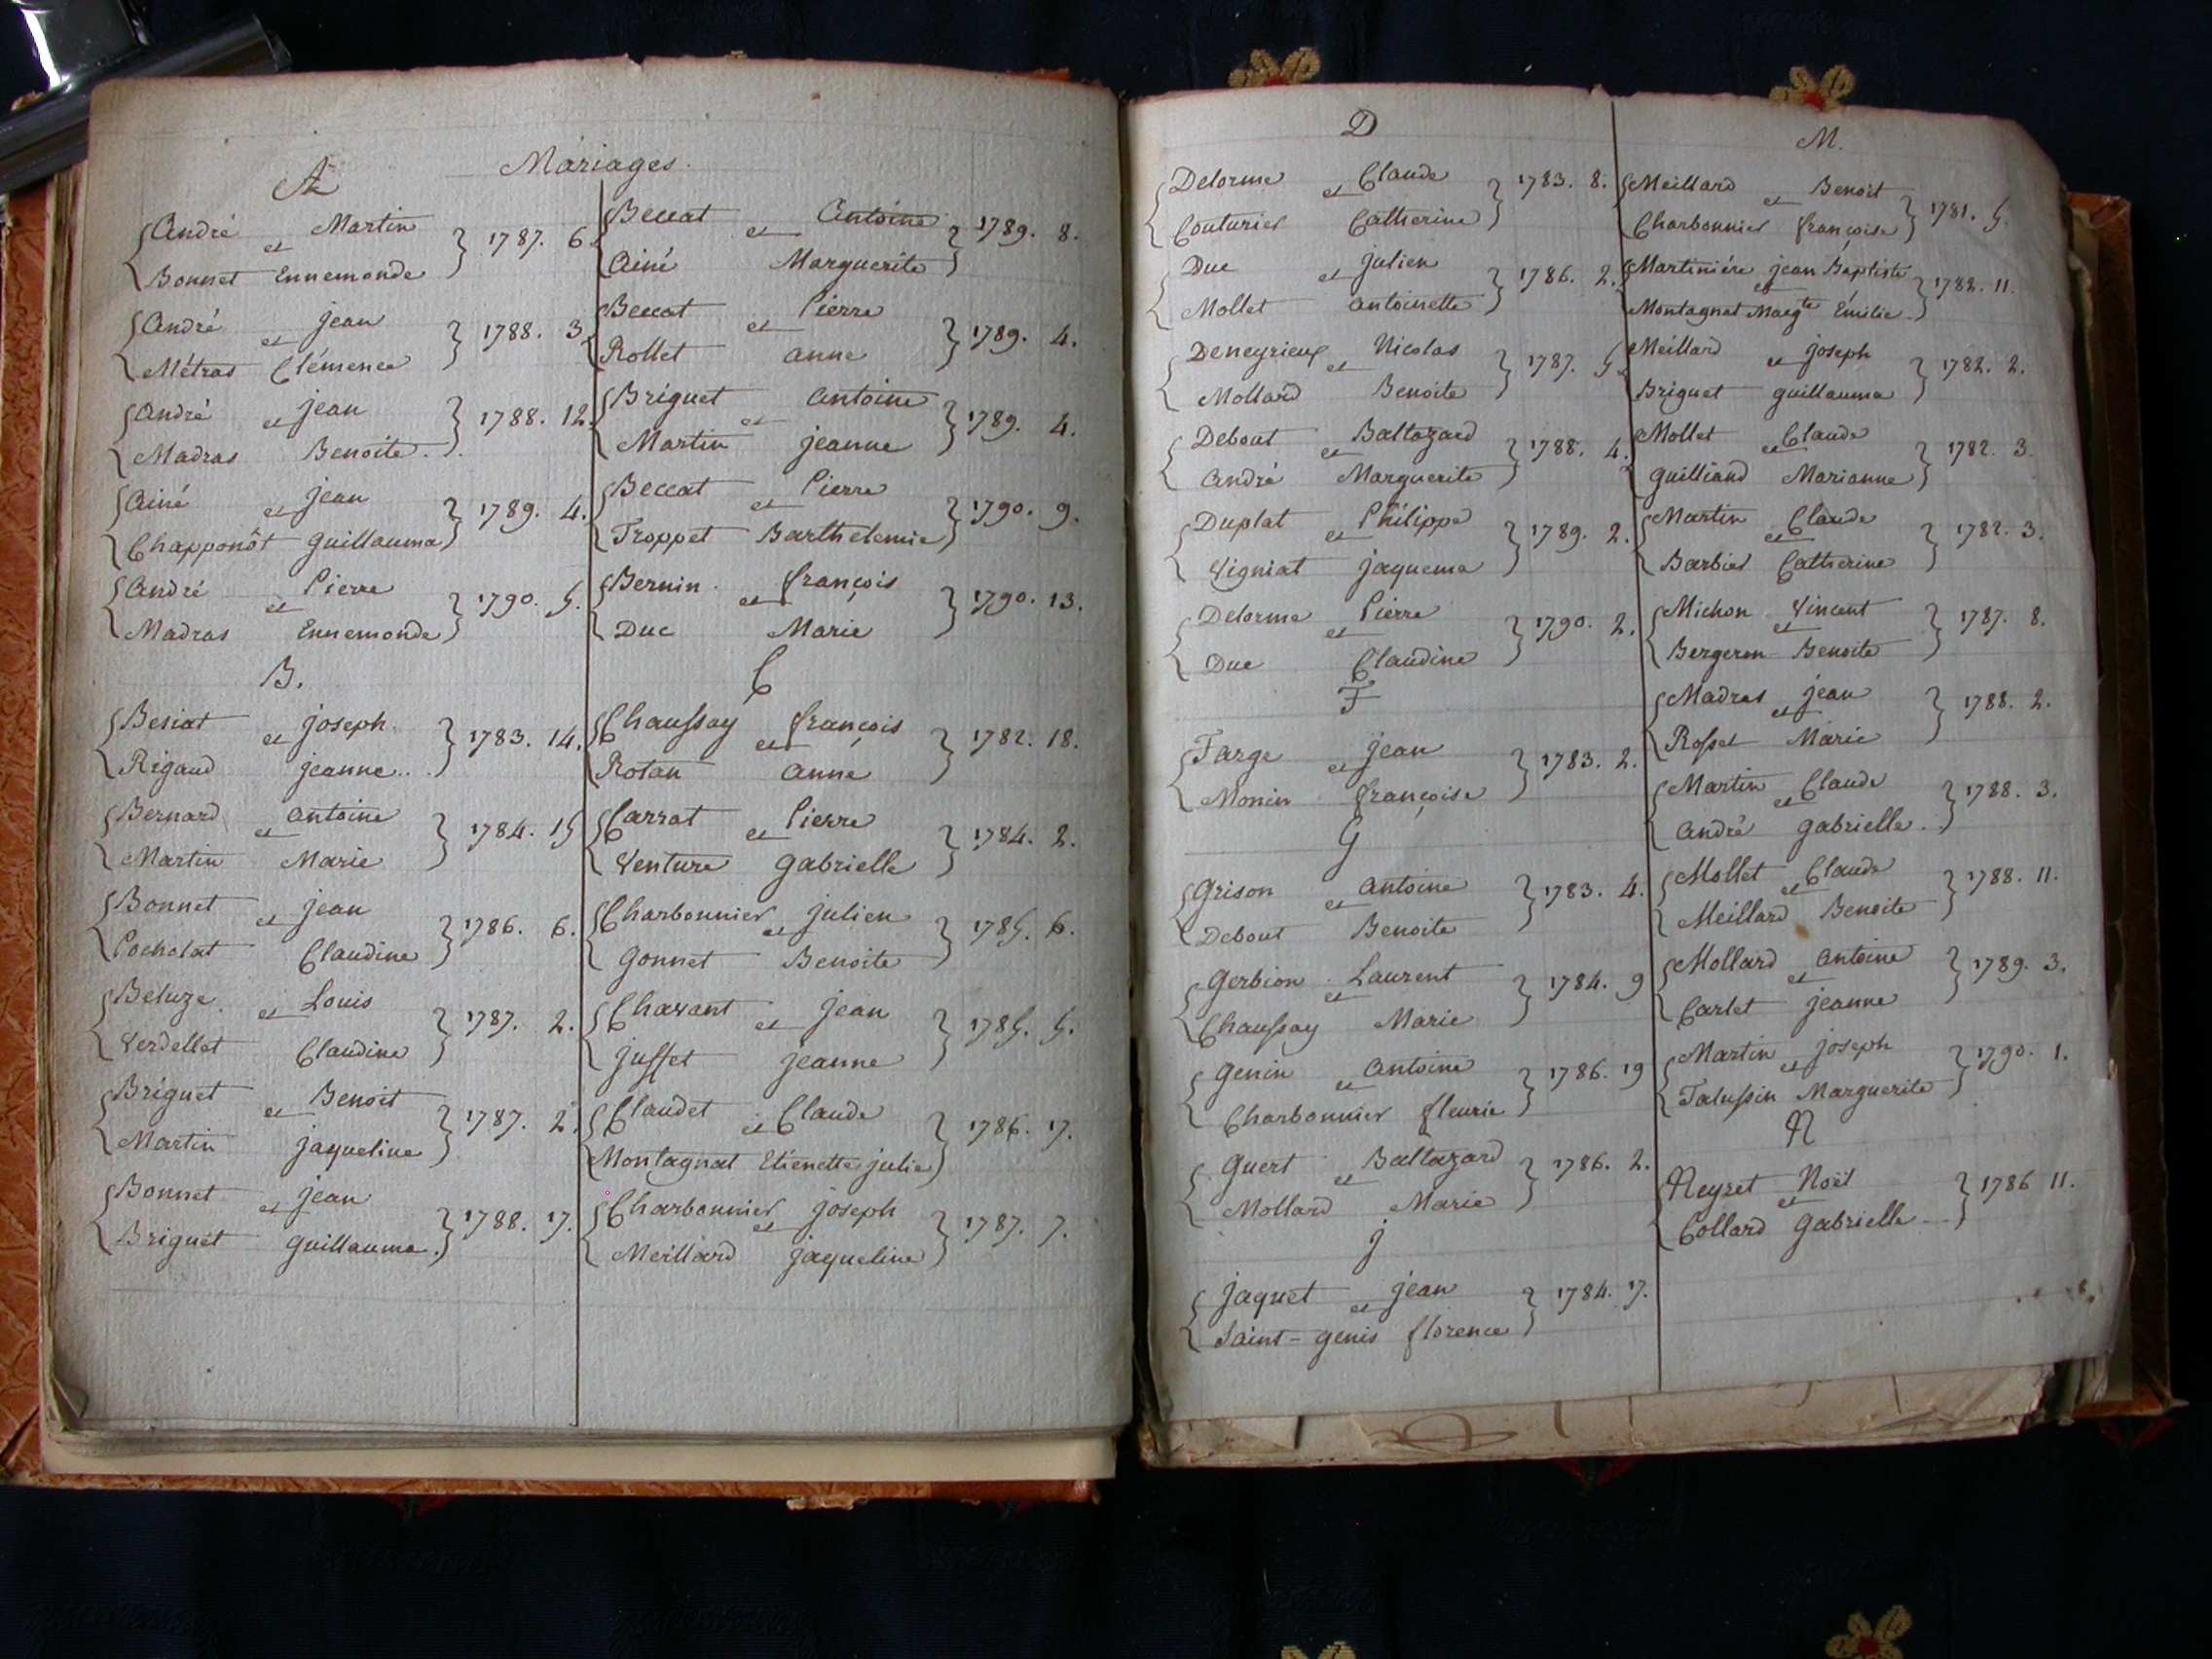 Mariages.
A
André et Martin
Bonnet Ennemonde } 1787. 6.
André et jean
Métras Clémence } 1788. 3.
André et jean
Madras Benoite. } 1788. 12.
Ainé et jean
Chapponôt guillauma } 1789. 4.
André et Pierre
Madras Ennemonde } 1790. 5.
B.
Besiat et joseph
Rigaud jeanne.. } 1783. 14.
Bernard et antoine
Martin Marie } 1784. 15
Bonnet et jean
Cochelat Claudine } 1786. 6.
Beluze. et Louis
Verdellet Claudine } 1787. 2.
Briguet et Benoit
Martin jaqueline } 1787. 2.
Bonnet et jean
Briguet guillauma. } 1788. 17.
Beccat et Antoine
Ainé Marguerite } 1789. 8.
Beccat et Pierre
Rollet anne } 1789. 4.
Briguet et Antoine
Martin jeanne } 1789. 4.
Beccat et Pierre
Troppet Barthelemie } 1790. 9.
Bernin. et françois
Duc Marie } 1790. 13.
C
Chaussay et françois
Rotan anne } 1782. 18.
Carrat et Pierre
Venture gabrielle } 1784. 2.
Charbonnier et julien
gonnet Benoite } 1785. 6.
Chavant et jean
jusset jeanne } 1785. 5.
Claudet et Claude
Montagnat Etienette julie } 1786. 17.
Charbonnier et joseph
Meillard jaqueline } 1787. 7.
D
Delorme et Claude
Couturier Catherine } 1783. 8.
Duc et julien
Mollet antoinette } 1786. 2.
Deneyrieux et Nicolas
Mollard Benoite } 1787. 5.
Debout et Baltazard
André Marguerite } 1788. 4.
Duplat et Philippe
Vigniat jaquema } 1789. 2.
Delorme et Pierre
Duc Claudine } 1790. 2.
F
Farge et jean
Monin françoise } 1783. 2.
G
Grison et antoine
Debout Benoite } 1783. 4.
Gerbion et Laurent
Chaussay Marie } 1784. 9
Genin et Antoine
Charbonnier fleurie } 1786. 19
Guert et Baltazard
Mollard Marie } 1786. 2.
j
jaquet et jean
Saint-genis florence } 1784. 17.
M.
Meillard et Benoit
Charbonnier françoise } 1781. 5.
Martiniére et jean Baptiste
Montagnat Margte Émilie } 1782. 11.
Meillard et joseph
Briguet guillauma } 1782. 2.
Mollet et Claude
guilliand Marianne } 1782. 3.
Martin et Claude
Barbier Catherine } 1782. 3.
Michon et Vincent
Bergeron Benoite } 1787. 8.
Madras et jean
Rosset Marie } 1788. 2.
Martin et Claude
André gabrielle. } 1788. 3.
Mollet et Claude
Meillard Benoite } 1788. 11.
Mollard et Antoine
Carlet jeanne } 1789. 3.
Martin et joseph
Talussin Marguerite } 1790. 1.
N
Neyret et Noël
Collard gabrielle } 1786 11.